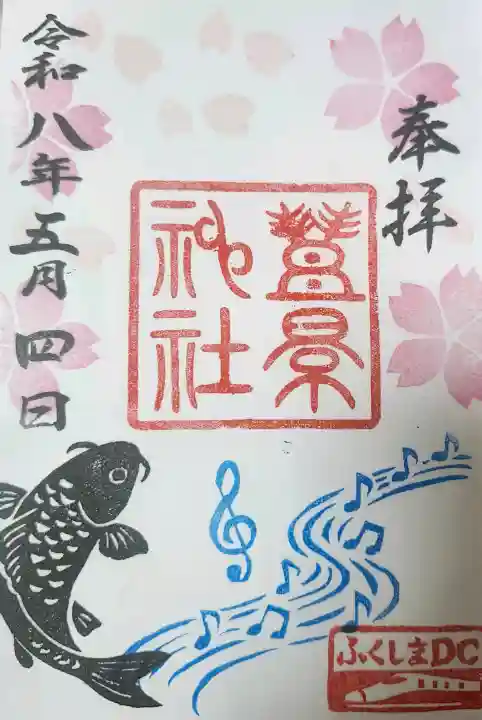 奉拝
豊景
神社
令和八年五月四日
ふくしまDC